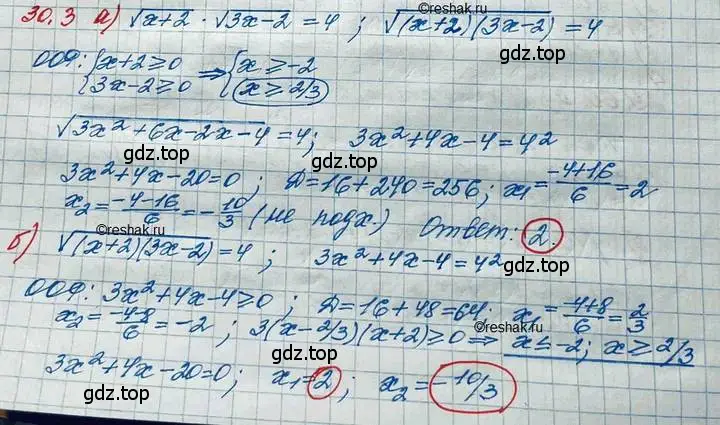 30.3 а) √(x+2) · √(3x-2) = 4 ; √((x+2)(3x-2)) = 4
©reshak.ru
ООФ: {x+2≥0 ⇒ {x≥-2
{3x-2≥0 {x≥2/3
gdz.top gdz.top
√(3x²+6x-2x-4) = 4; 3x²+4x-4=4²
gdz.top gdz.top
3x²+4x-20=0 ; D=16+240=256; x₁=(-4+16)/6=2
x₂=(-4-16)/6=-10/3 (не подх.) Ответ: 2.
©reshak.ru
б) √((x+2)(3x-2)) = 4 ; 3x²+4x-4=4²
gdz.top gdz.top
ООФ: 3x²+4x-4≥0 ; D=16+48=64. x₁=(-4+8)/6=2/3
x₂=(-4-8)/6=-2 ; 3(x-2/3)(x+2)≥0 ⇒ x≤-2; x≥2/3
©reshak.ru
gdz.top gdz.top
3x²+4x-20=0; x₁=2 ; x₂=-10/3
gdz.top gdz.top